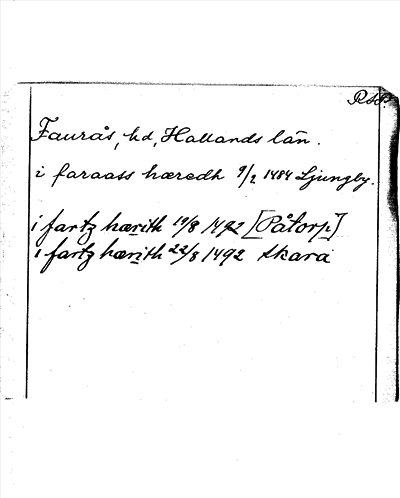 RAP.
Faurås, hd, Hallands län.
i faraass hæredh 9/2 1484 Ljungby.
i fartz hærith 19/8 1492 [Påtorp]
i fartz hærith 22/8 1492 Skara